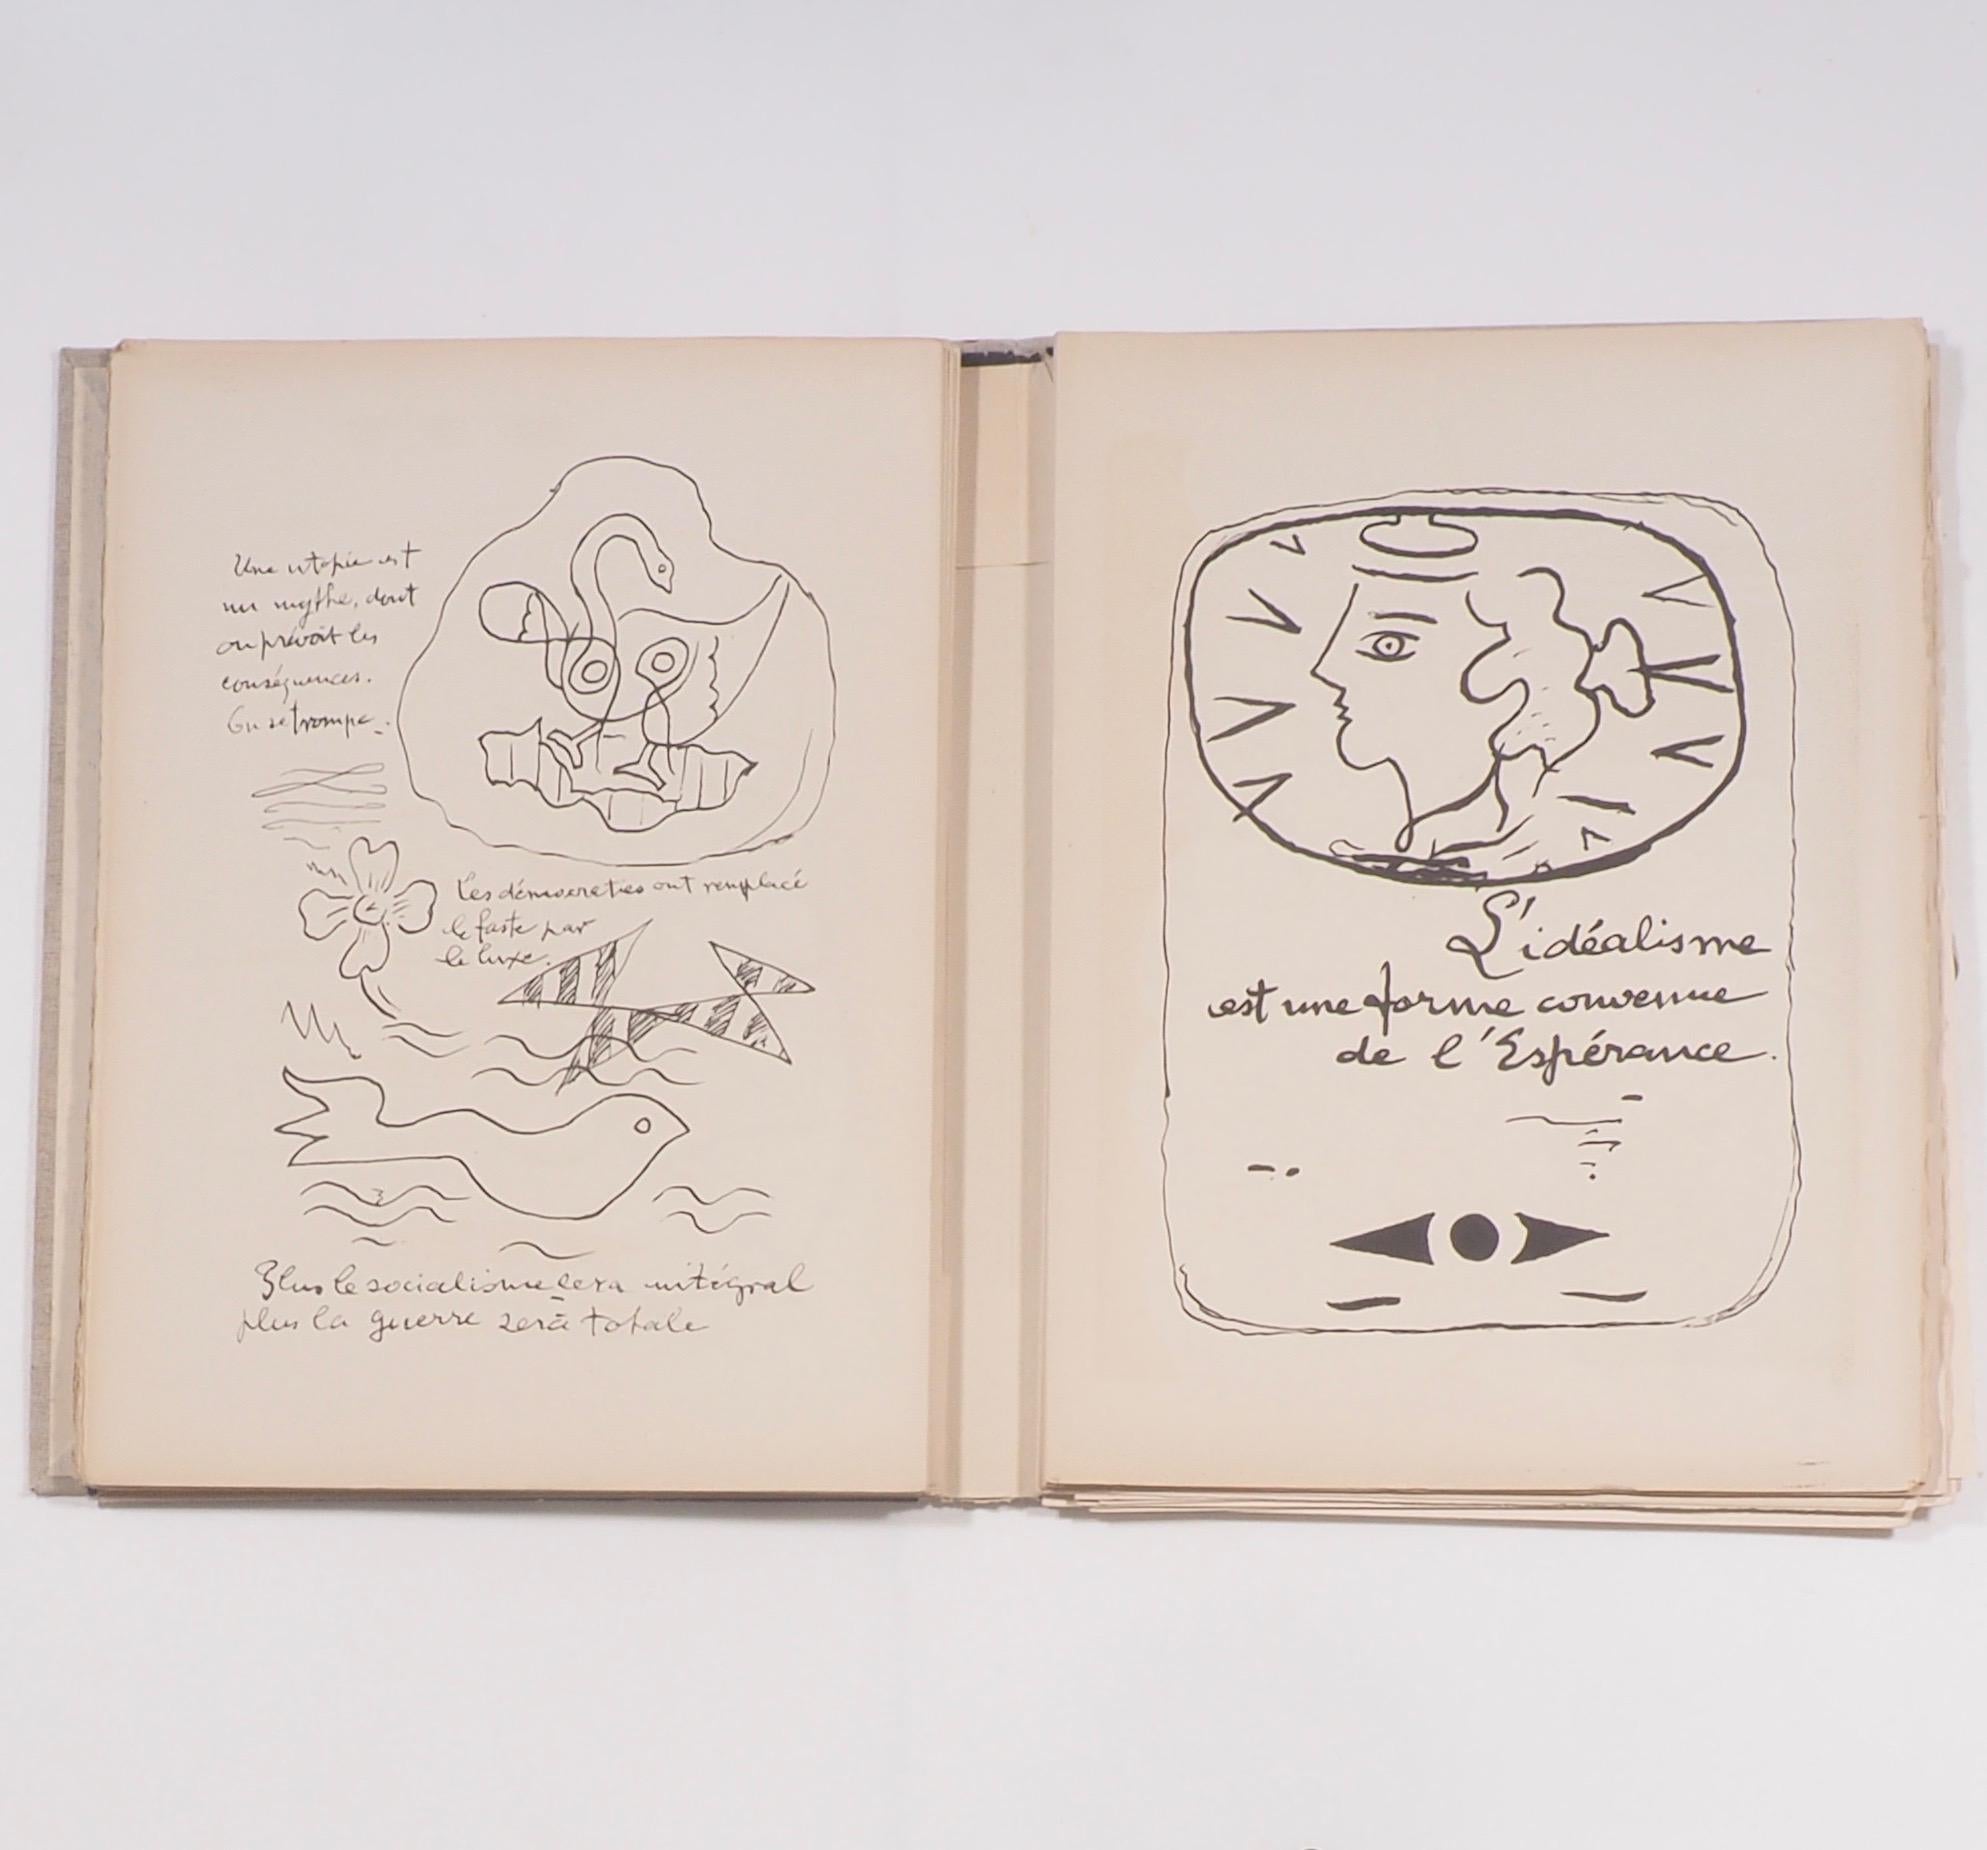 Une utopie est
un mythe, dont
on prévoit les
conséquences.
On se trompe.
Les démocraties ont remplacé
le faste par
le luxe.
Plus le socialisme sera intégral
plus la guerre sera totale
L'idéalisme
est une forme convenue
de l'Espérance.